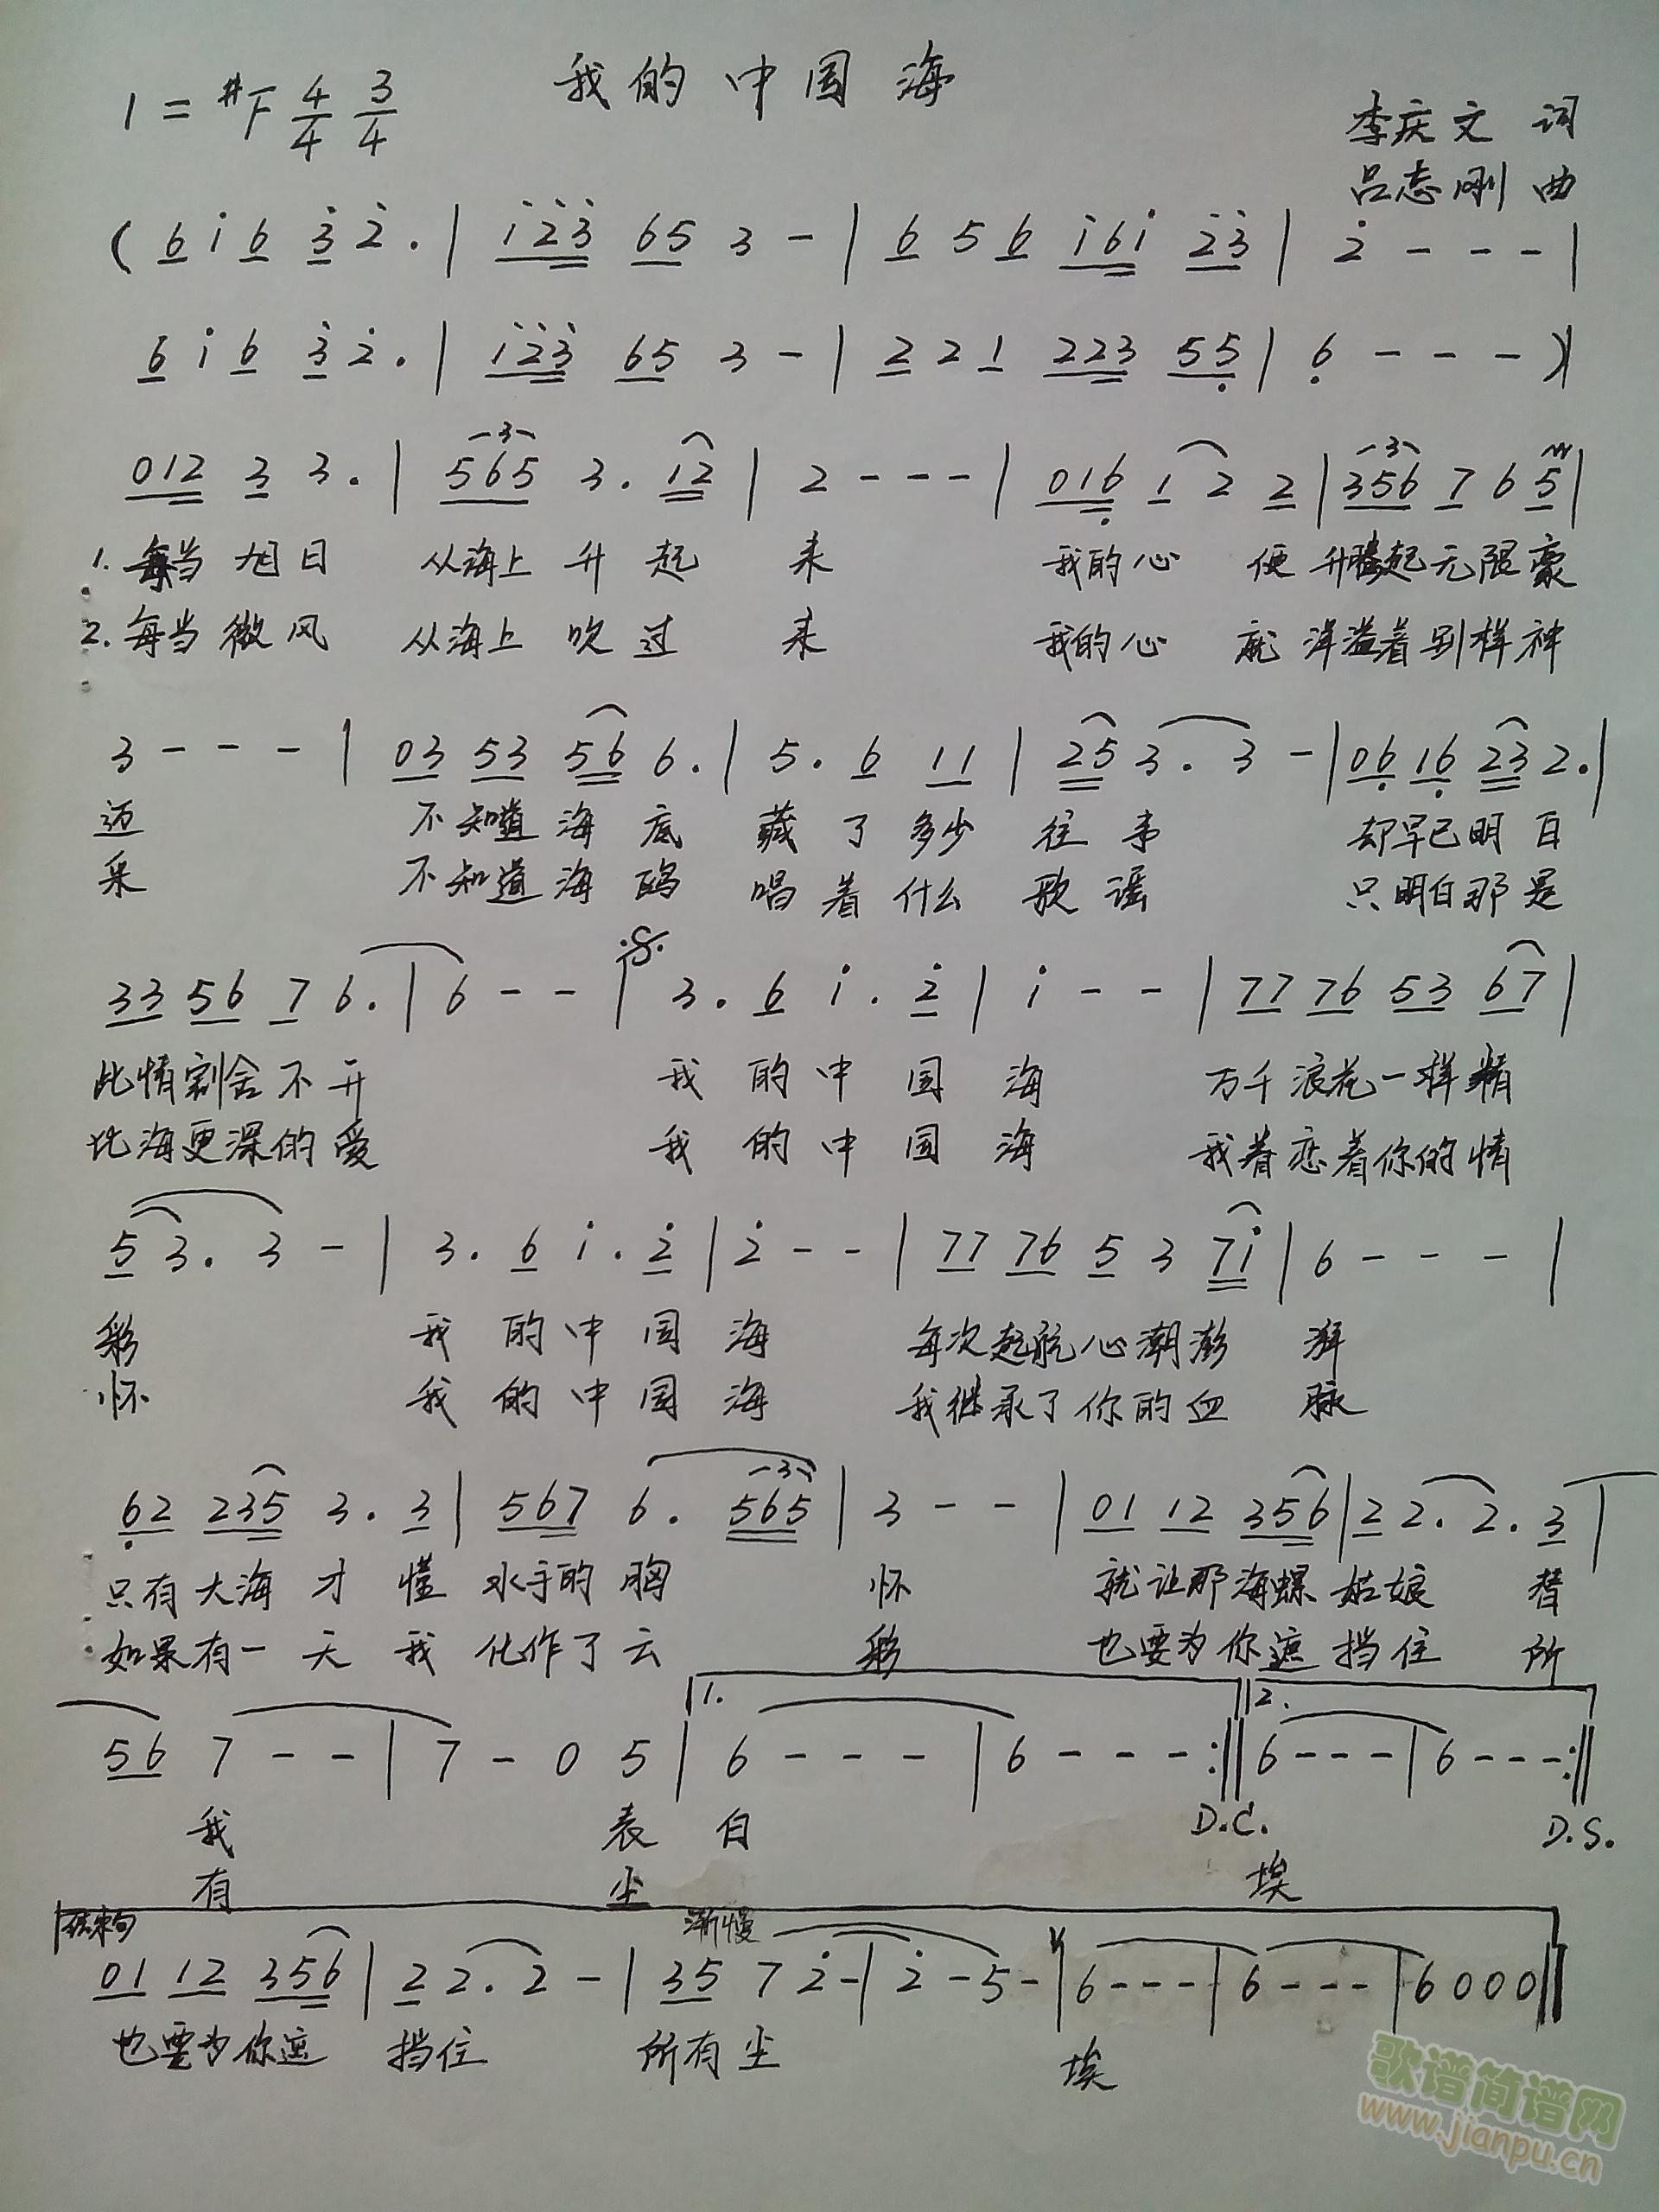 我的中国海
1=#F 4/4 3/4
李庆文 词
吕志刚 曲
(6 i 6 3 2. | i23 65 3 - | 6 5 6 i6i 23 | 2 - - - |
6 i 6 3 2. | i23 65 3 - | 2 2 1 223 55 | 6 - - - )|
012 3 3. | 565 3. 12 | 2 - - - | 016 1 2 2 | 356 7 6 5 |
1. 每当旭日 从海上升起 来 我的心 便升腾起无限豪
2. 每当微风 从海上吹过 来 我的心 就洋溢着别样神
3 - - - | 03 53 56 6. | 5. 6 11 | 25 3. 3 - | 06 16 23 2. |
迈 不知道海底 藏了多少 往事 却早已明白
采 不知道海鸥 唱着什么 歌谣 只明白那是
33 56 7 6. | 6 - - | 3. 6 i. 2 | i - - | 77 76 53 67 |
此情割舍不开 我的中国海 万千浪花一样精
比海更深的爱 我的中国海 我眷恋着你的情
5 3. 3 - | 3. 6 i. 2 | 2 - - | 77 76 5 3 7i | 6 - - - |
彩 我的中国海 每次起航心潮澎 湃
怀 我的中国海 我继承了你的血 脉
62 235 3. 3 | 567 6. 565 | 3 - - | 01 12 356 | 2 2. 2. 3 |
只有大海才懂 水手的胸 怀 就让那海螺姑娘 替
如果有一天我 化作了云 彩 也要为你遮挡住 所
56 7 - - | 7 - 0 5 | 1. 6 - - - | 6 - - - :|| 2. 6 - - - | 6 - - - :||
我 表 白 D.C. D.S.
有 尘 埃
结束句 渐慢
01 12 356 | 2 2. 2 - | 35 7 2 - | 2 - 5 - | 6 - - - | 6 - - - | 6 0 0 0 ||
也要为你遮 挡住 所有尘 埃
歌谱简谱网
www.jianpu.cn